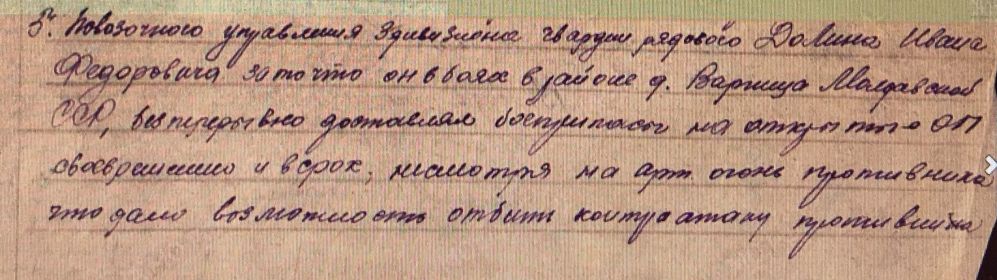 5. Повозочного управления 3 дивизиона гвардии рядового Долина Ивана
Федоровича за то что он в боях в районе д. Варница Молдавской
ССР, беспрерывно доставлял боеприпасы на открытые ОП
своевременно и в срок, несмотря на арт. огонь противника
что дало возможность отбить контратаку противника